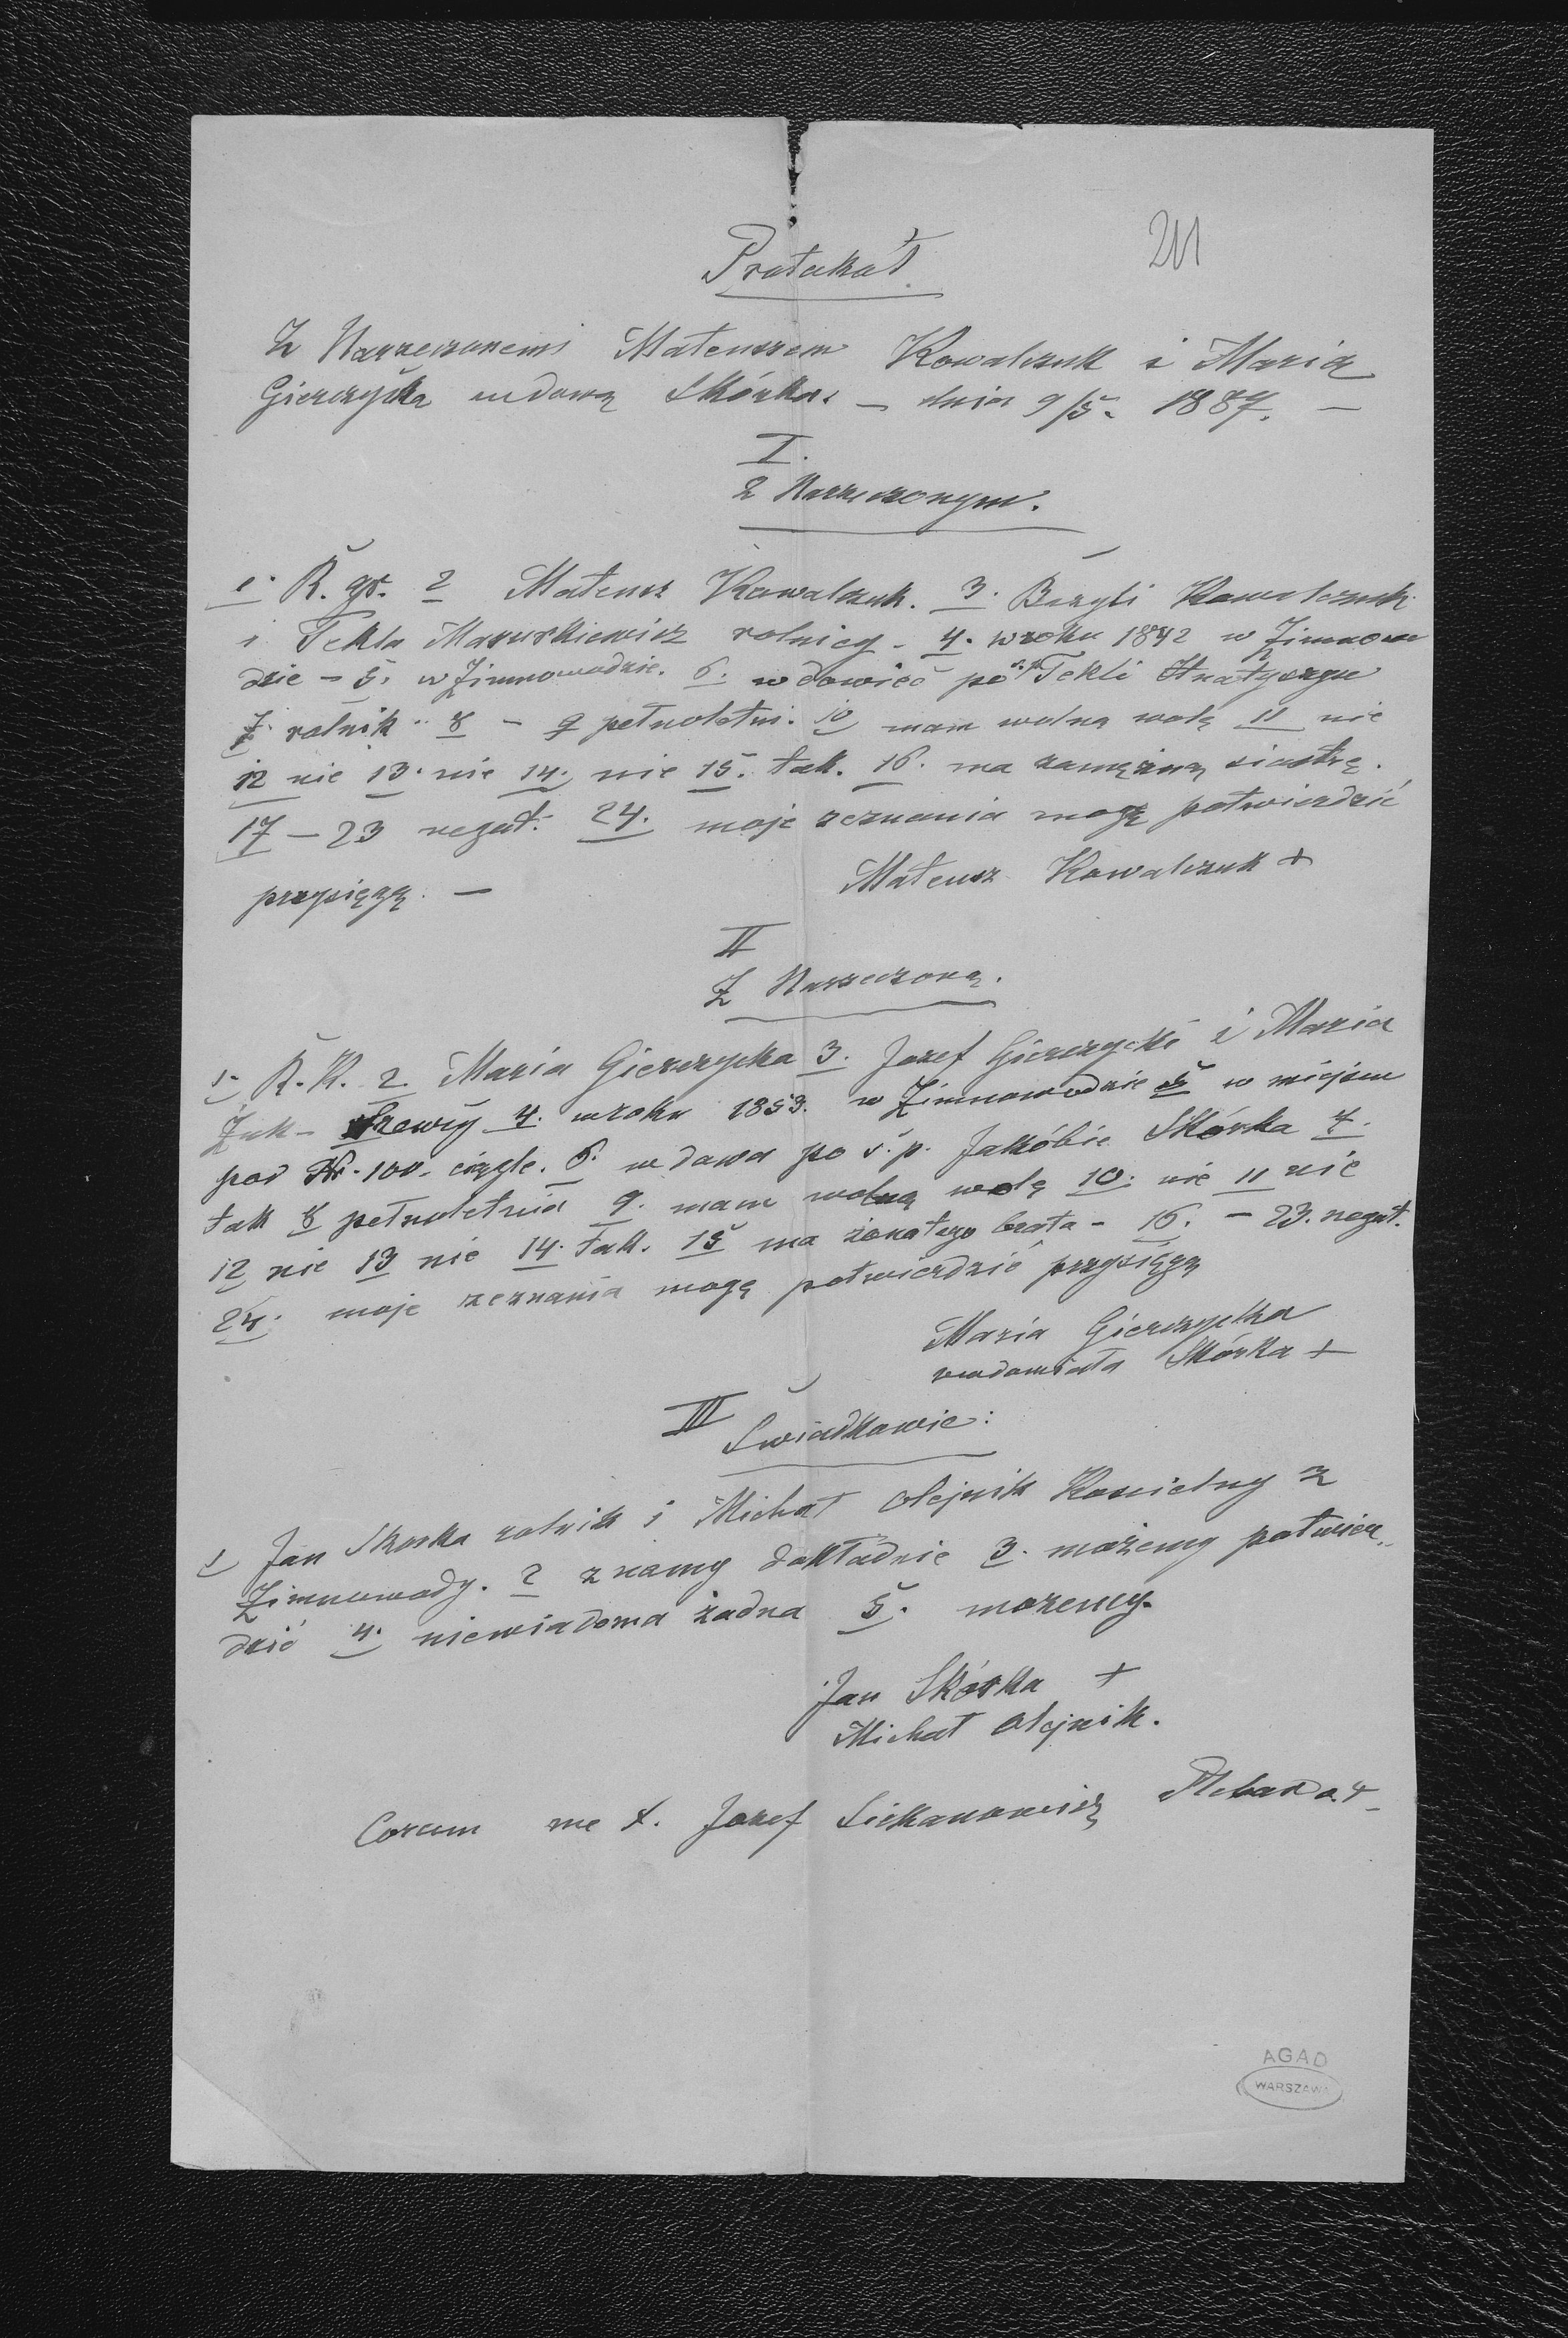 211
Protokół
Z Narzeczonemi Mateuszem Kowalczuk i Marią
Gierczycka wdową Skórka. — dnia 9/5. 1887. —
I.
Z Narzeczonym.
1. R. gr. 2 Mateusz Kowalczuk. 3. Bazyli Kowalczuk
i Tekla Masurkiewicz rolnicy - 4. w roku 1842 w Zimnowo
dzie - 5. w Zimnowodzie. 6. wdowiec po ś.p. Tekli Hnatyszyn
7. rolnik 8 - 9 pełnoletni. 10 mam wolną wolę 11 nie
12 nie 13. nie 14. nie 15. tak. 16. ma zamężną siostrę.
17 - 23 negat. 24. moje zeznania mogę potwierdzić
przysięgą. —
Mateusz Kowalczuk +
II
Z Narzeczoną.
1. R. K. 2. Maria Gierczycka 3. Jozef Gierczycki i Maria
Żuk - 4. w roku 1853. w Zimnowodzie 5 w miejscu
pod Nr. 100. ciągle. 6. wdowa po ś.p. Jakóbie Skórka 7.
tak 8 pełnoletnia 9. mam wolną wolę 10. nie 11 nie
12 nie 13 nie 14. tak. 15 ma żonatego brata - 16. - 23. negat.
24. moje zeznania mogę potwierdzić przysięgą
Maria Gierczycka
owdowiała Skórka +
III
Świadkowie:
1 Jan Skorka rolnik i Michał Olejnik Kościelny z
Zimnowody. 2 znamy dokładnie 3. możemy potwier„
dzić 4. niewiadoma żadna 5. możemy.
Jan Skórka +
Michał Olejnik.
Coram me X. Jozef
AGAD
WARSZAWA